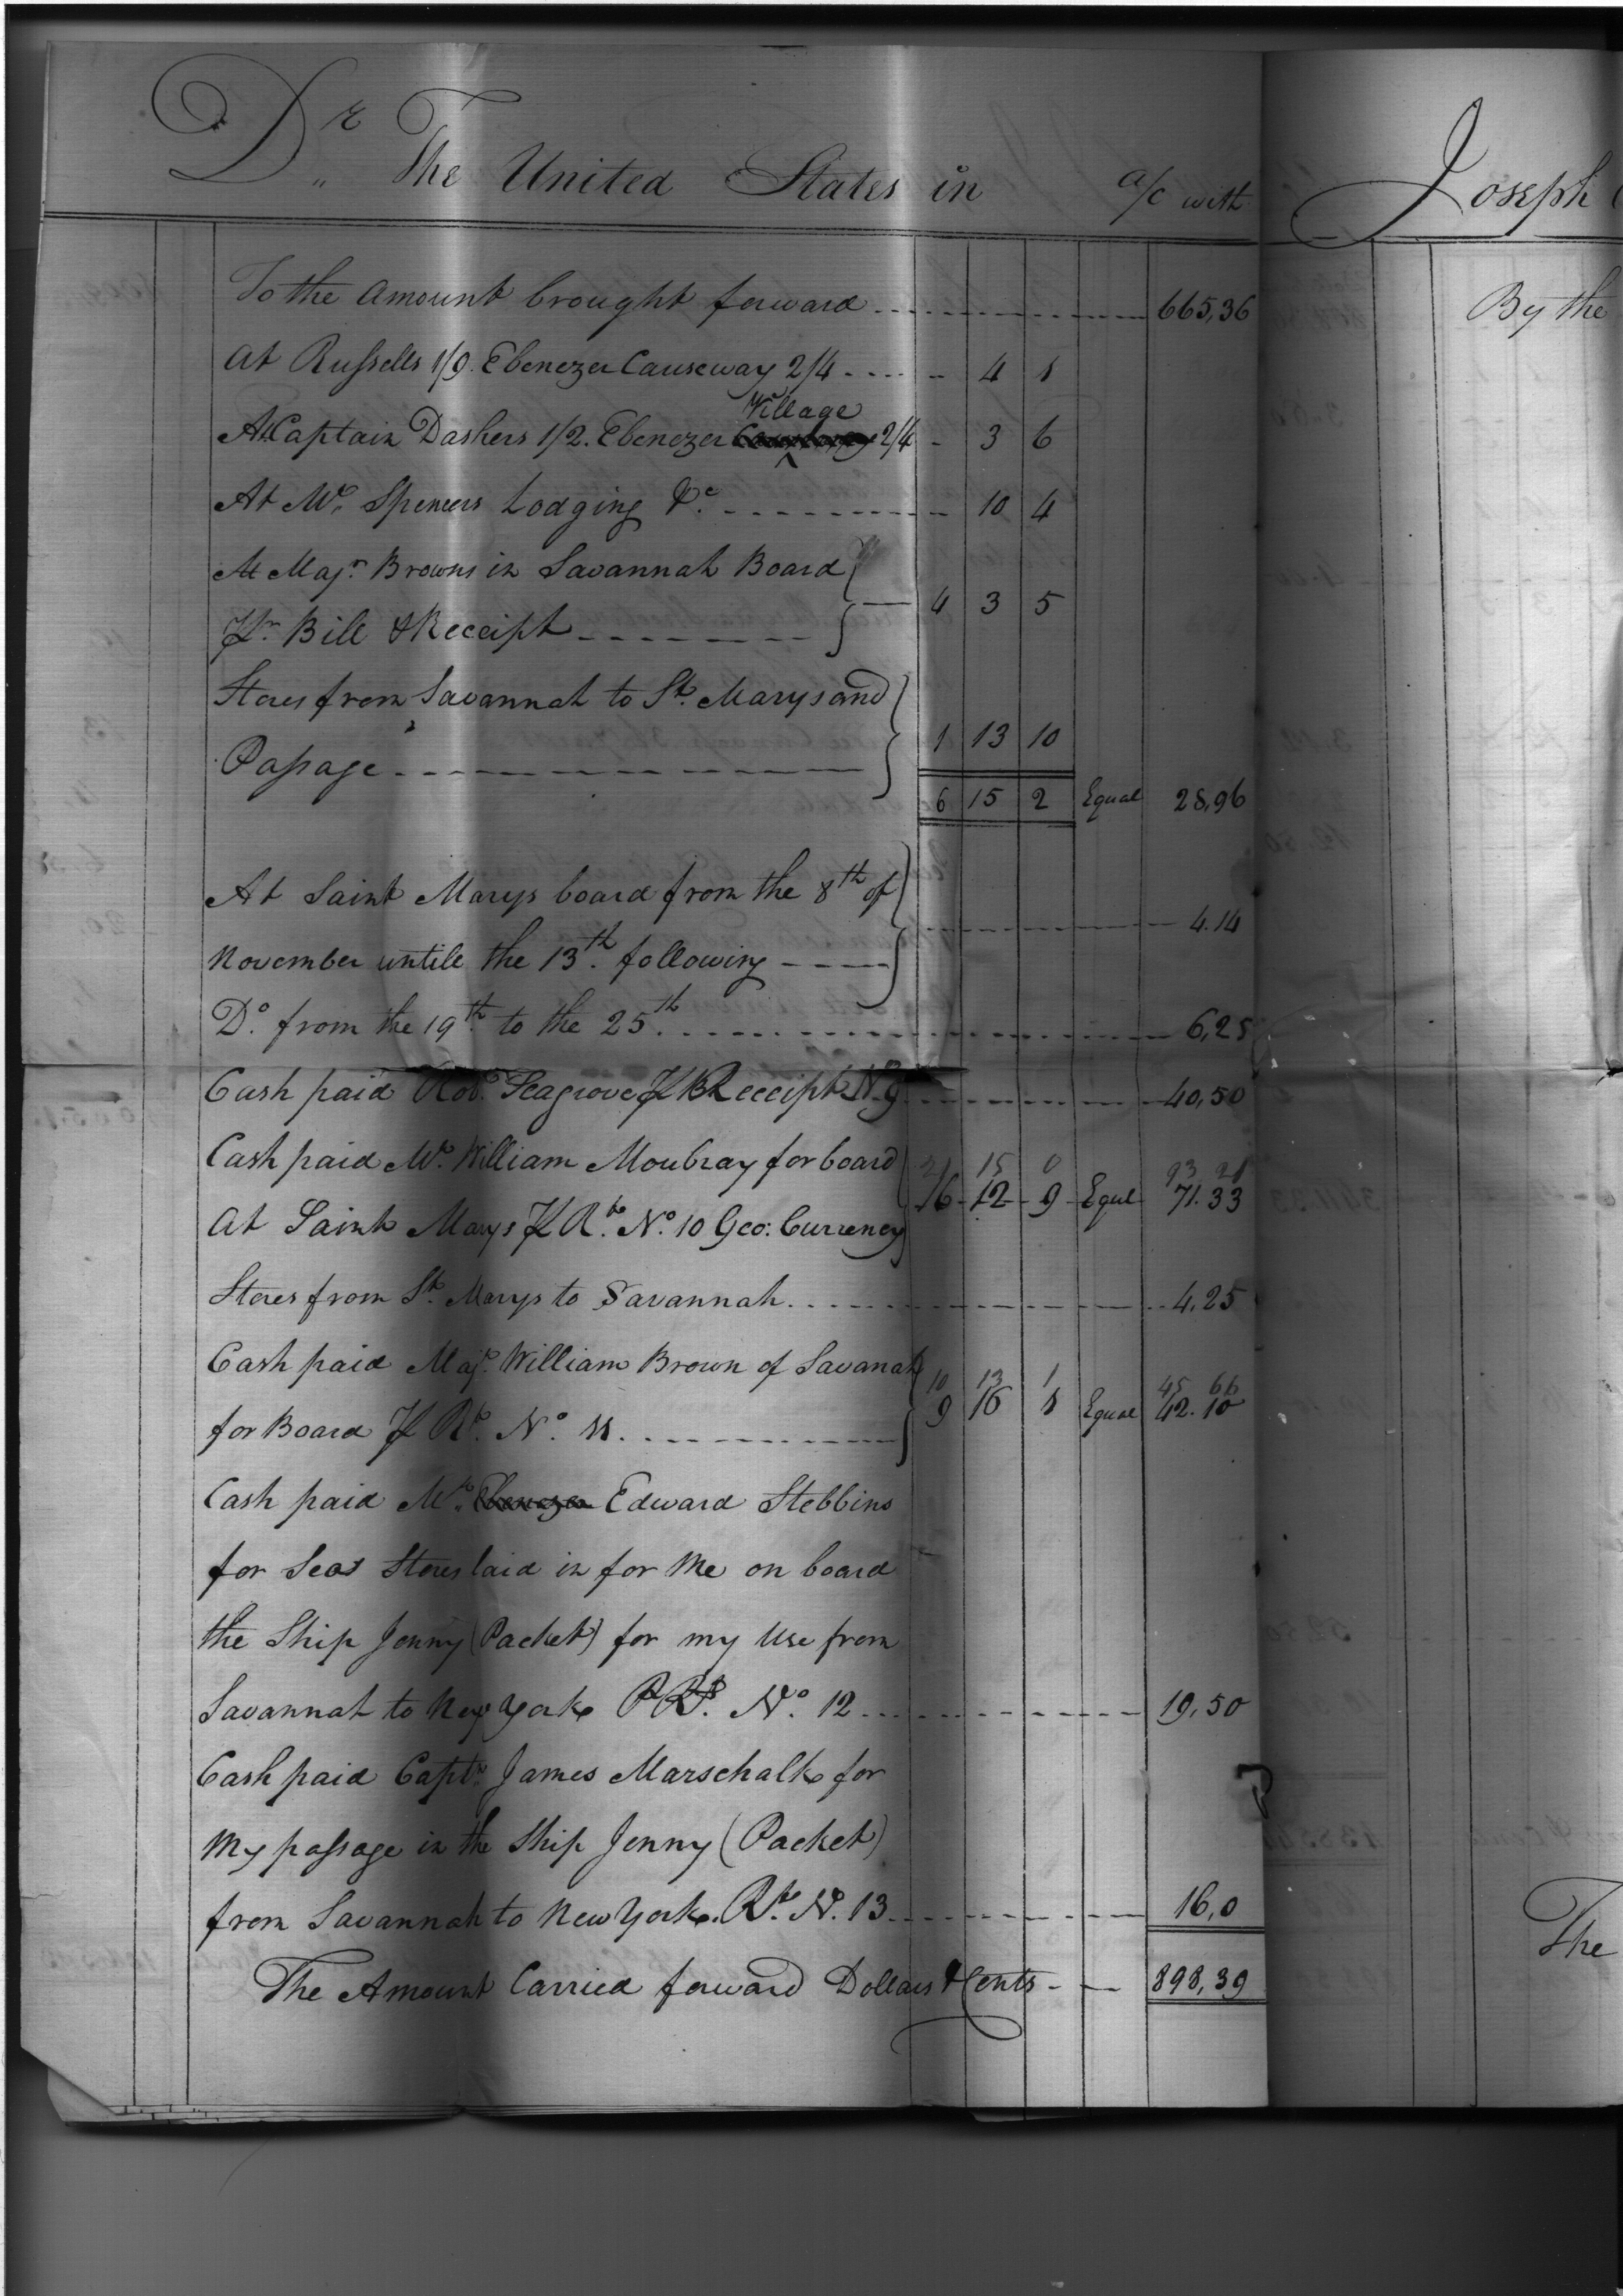 Dr. The United States in a/c with
To the Amount brought forward 665,36
At Russells 1/9. Ebenezer Causeway 2/4 - 4 1
Village
At Captain Dashers 1/2. Ebenezer 2/4 - 3 6
At Mr. Spencers Lodging &c. - 10 4
At Majr. Browns in Savannah Board
Pr. Bill & Receipt 4 3 5
Stores from Savannah to St. Marys and
Passage 1 13 10
6 15 2 Equal 28,96
At Saint Marys board from the 8th of
November untile the 13th. following 4.14
Do. from the 19th. to the 25th. 6,25
Cash paid Robt. Seagrove Pr Receipt No 9 40,50
Cash paid Mr. William Moubray for board
21 15 0 93 21
16 12 9 Equl 71.33
At Saint Marys Pr Rt. No. 10 Geo: Currency
Stores from St. Marys to Savannah 4,25
Cash paid Majr. William Brown of Savanah
10 13 1 45 66
9 16 1 Equal 42.10
for Board Pr Rt. No. 11.
Cash paid Mr. Ebenezer Edward Stebbins
for Seas Stores laid in for Me on board
the Ship Jenny (Packet) for my Use from
Savannah to New York P Rt. No. 12 19,50
Cash paid Captn. James Marschalk for
My passage in the Ship Jenny (Packet)
from Savannah to New York. Rt. No. 13 16,0
The Amount Carried forward Dollars & Cents 898,39
Joseph
By the
The